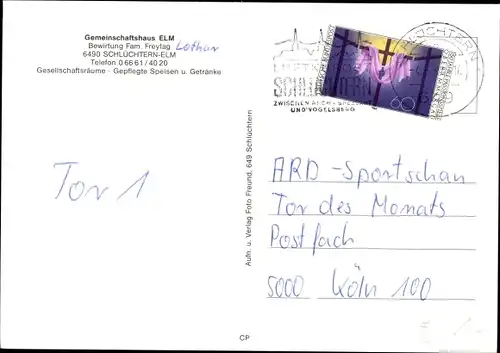 Gemeinschaftshaus ELM
Bewirtung Fam. Freytag, Lothar
6490 SCHLÜCHTERN-ELM
Telefon 0 66 61 / 40 20
Gesellschaftsräume - Gepflegte Speisen u. Getränke
SCHLÜCHTERN
ZWISCHEN RHÖN - SPESSART
UND VOGELSBERG
60
Aufn. u. Verlag Foto Freund, 649 Schlüchtern
Tor 1
ARD - Sportschau
Tor des Monats
Postfach
5000 Köln 100
CP